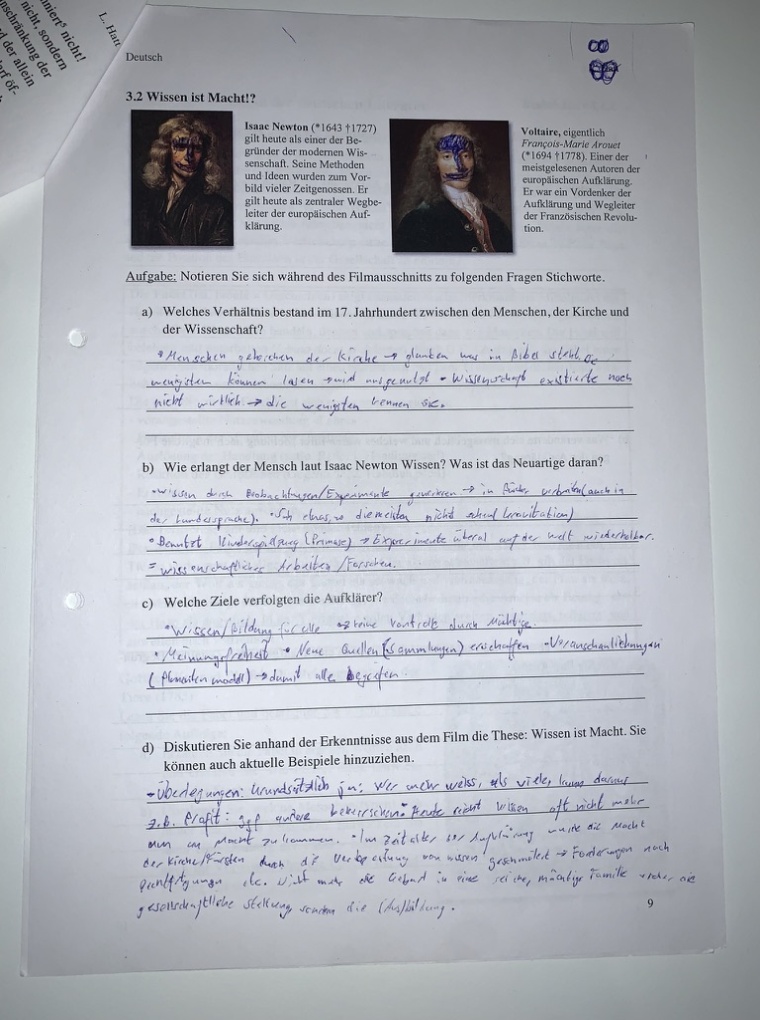 niert⁵ nicht!
nicht, sondern
nschränkung der
d der allein
arf öf-
L. Hatt
Deutsch
3.2 Wissen ist Macht!?
Isaac Newton (*1643 †1727)
gilt heute als einer der Be-
gründer der modernen Wis-
senschaft. Seine Methoden
und Ideen wurden zum Vor-
bild vieler Zeitgenossen. Er
gilt heute als zentraler Wegbe-
leiter der europäischen Auf-
klärung.
Voltaire, eigentlich
François-Marie Arouet
(*1694 †1778). Einer der
meistgelesenen Autoren der
europäischen Aufklärung.
Er war ein Vordenker der
Aufklärung und Wegleiter
der Französischen Revolu-
tion.
Aufgabe: Notieren Sie sich während des Filmausschnitts zu folgenden Fragen Stichworte.
a) Welches Verhältnis bestand im 17. Jahrhundert zwischen den Menschen, der Kirche und
der Wissenschaft?
• Menschen gehorchen der Kirche → glauben was in Bibel steht, die
wenigsten können lesen → wird ausgenutzt • Wissenschaft existierte noch
nicht wirklich → die wenigsten kennen sie.
b) Wie erlangt der Mensch laut Isaac Newton Wissen? Was ist das Neuartige daran?
• Wissen durch Beobachtungen/Experimente generieren → in Bücher (auch in
der Landessprache). • Sah etwas, wo die meisten nicht sehen (Gravitation)
• Benutzt Kinderspielzeug (Prismen) → Experimente überal auf der Welt wiederholbar.
= wissenschaftliches Arbeiten / Forschen.
c) Welche Ziele verfolgten die Aufklärer?
• Wissen/Bildung für alle → keine Kontrolle durch Mächtige.
• Meinungsfreiheit • Neue Quellen (Sammlungen) erschaffen • Veranschaulichungen
(Planeten modell) → damit alle begreifen.
d) Diskutieren Sie anhand der Erkenntnisse aus dem Film die These: Wissen ist Macht. Sie
können auch aktuelle Beispiele hinzuziehen.
- Überlegungen: Grundsätzlich ja: Wer mehr weiss, als viele, kann daraus
z.B. Profit: ggf andere beherrschen. • Heute reicht Wissen oft nicht mehr
um an Macht zu kommen. • Im Zeitalter der Aufklärung wurde die Macht
der Kirche/Fürsten durch die Verbreitung von Wissen geschmälert → Forderungen nach
die Geburt in eine reiche, mächtige Familie
gesellschaftliche Stellung, sondern die (Aus)bildung.
9